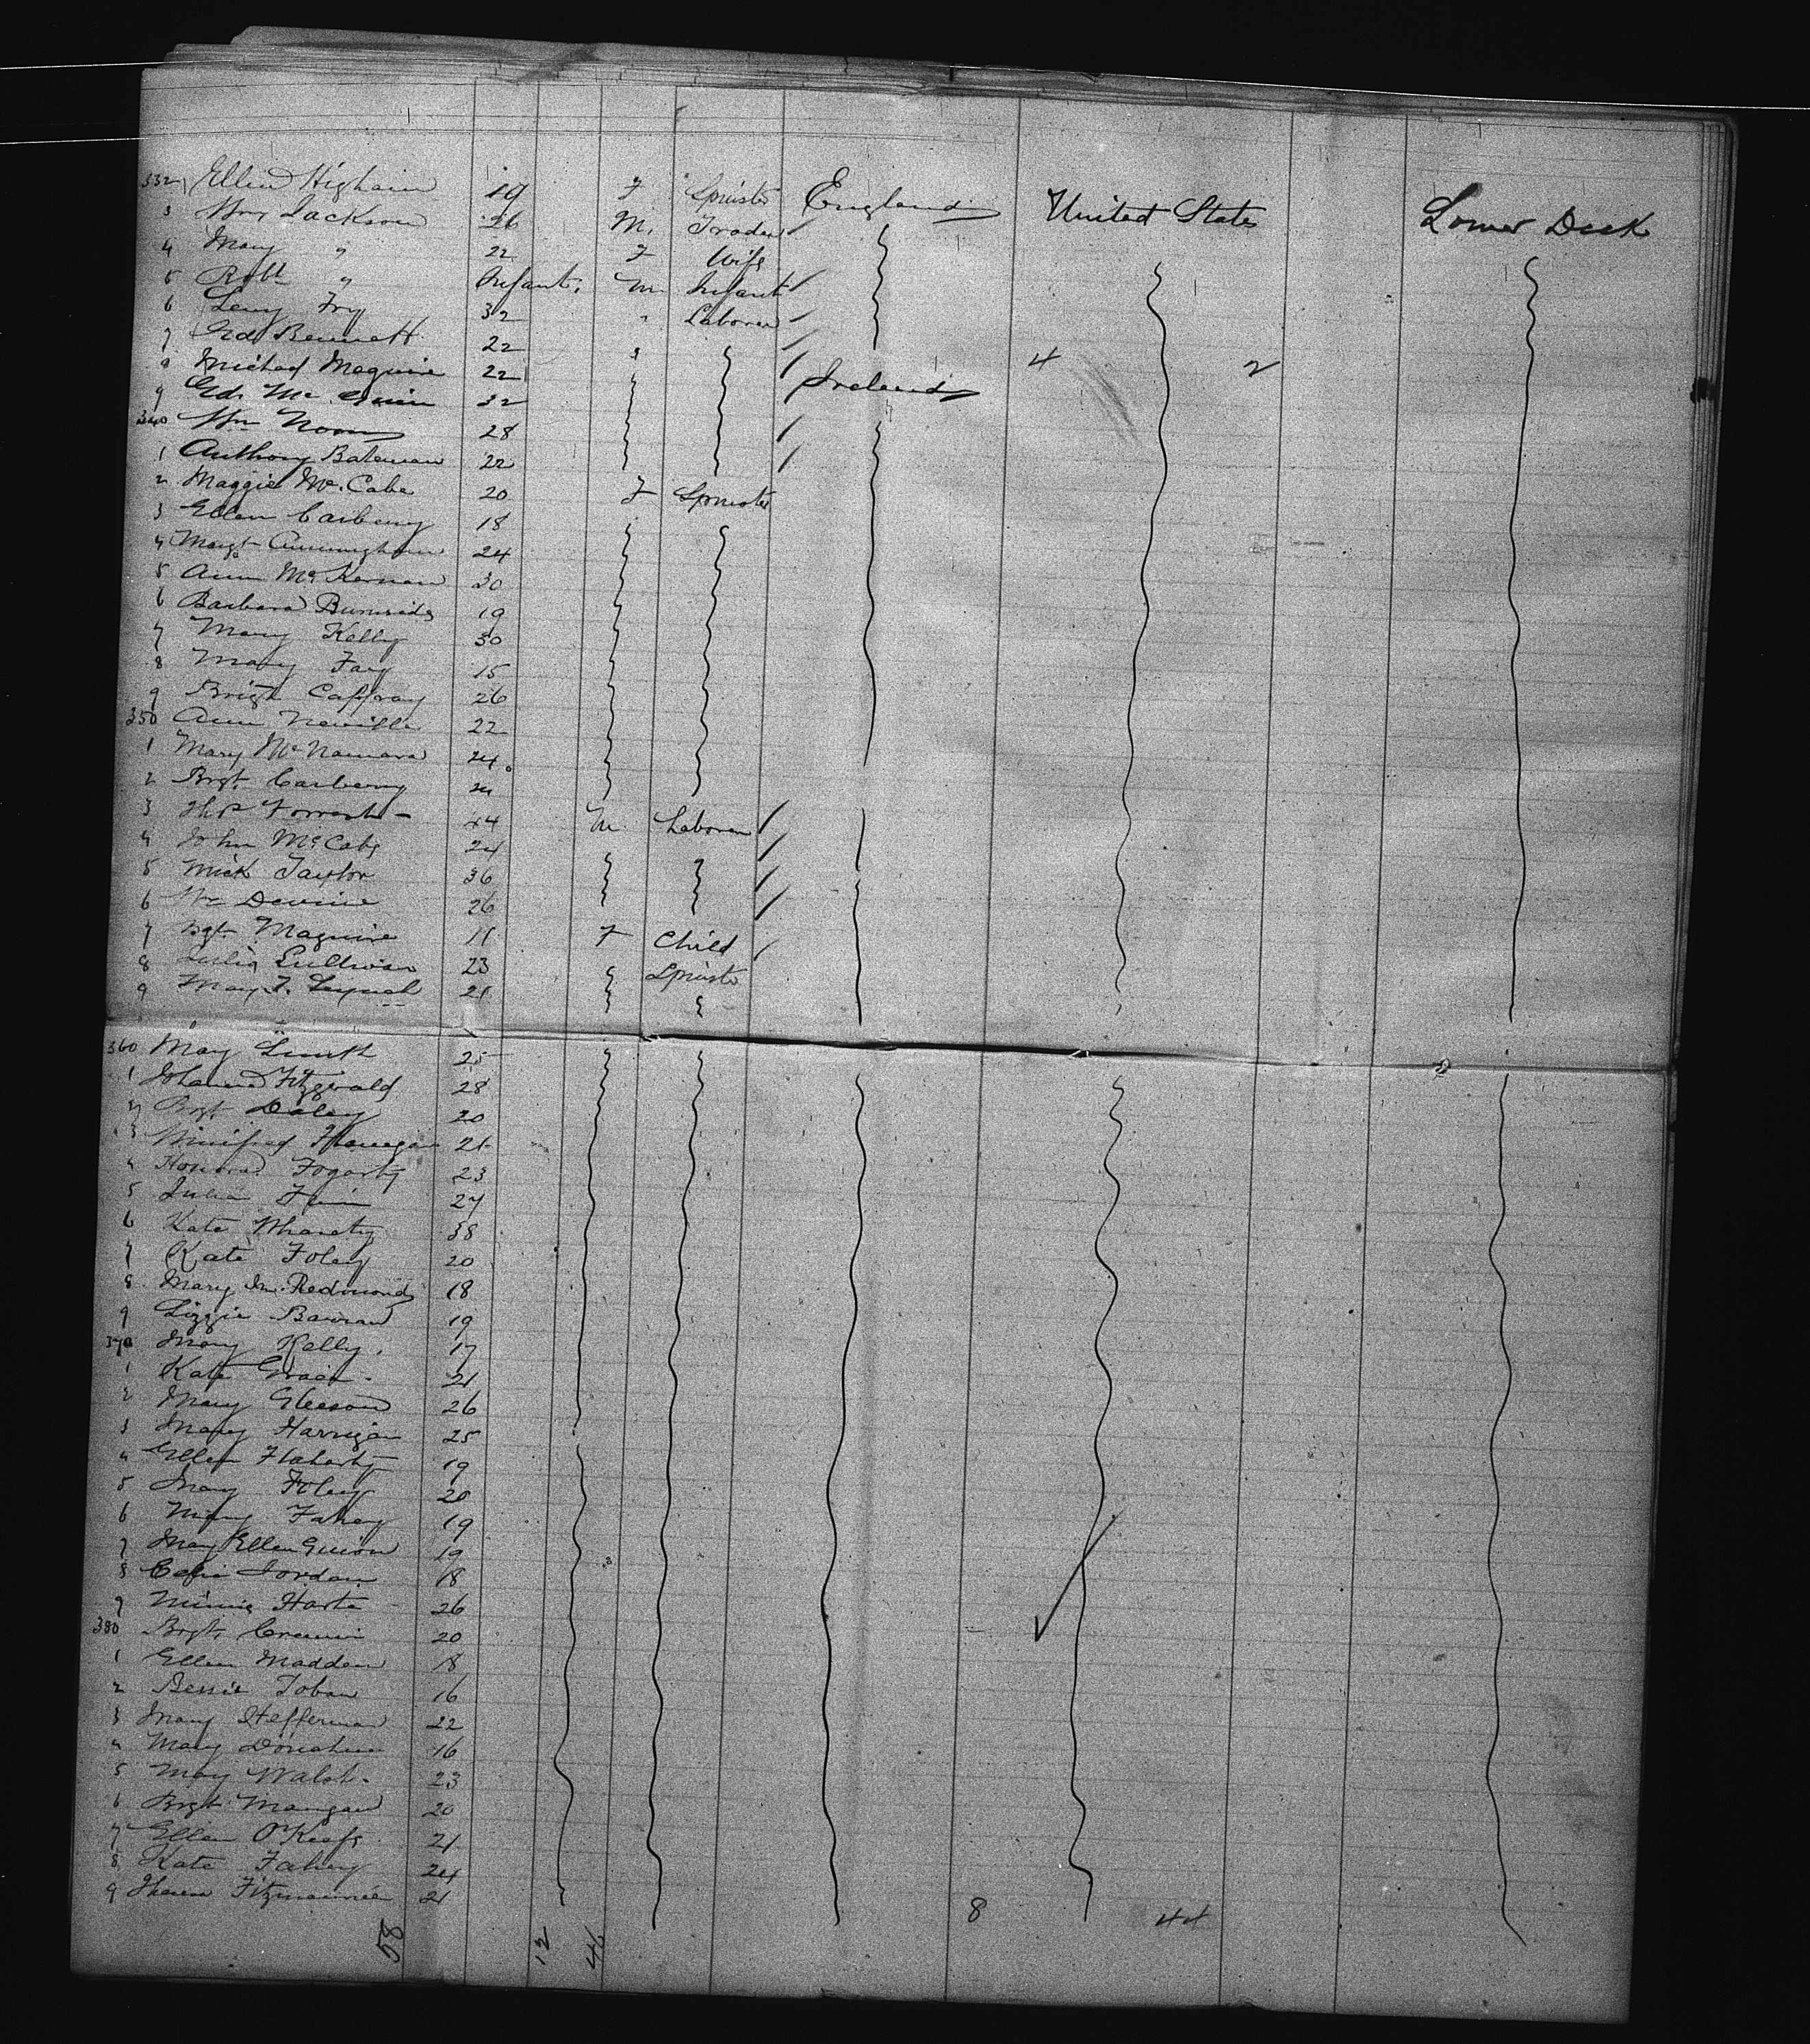 332 Ellen Higham 19 F Spinster England United States Lower Deck
3 Wm Jackson 26 M. Trader
4 Mary " 22 F Wife
5 Robt " Infant. M Infant
6 Levy Fry 32 " Laborer
7 Ed Bennett 22
8 Michael Maguire 22 Ireland 4 2
9 Ed. Mc 32
340 Wm 28
1 Anthony Bateman 22
2 Maggie McCabe 20 F Spinster
3 Ellen Carberry 18
4 Margt Cunningham 24
5 Ann McKernan 30
6 Barbara Burnside 19
7 Mary Kelly 30
8 Mary Fay 15
9 Bright Caffray 26
350 Ann Neville 22
1 Mary McNamara 24
2 Brgt. Carberry 21
3 Thos Forrest 24 M. Laborer
4 John McCabe 24
5 Mick Taylor 36
6 Wm Devine 26
7 Bgt. Maguire 11 F Child
8 Julia Sullivan 23 Spinster
9 Mary T. Lynch 21
360 Mary Smith 25
1 Johanna Fitzgerald 28
2 Brgt. Daley 20
3 Winifred Flanegan 21
4 Honora Fogarty 23
5 Julia 27
6 Kate 38
7 Kate Foley 20
8 Mary M. Redmond 18
9 Lizzie 19
370 Mary Kelly. 17
1 Kate 21
2 Mary Gleeson 26
3 Mary Harrigan 25
4 Ellen Flaherty 19
5 Mary Foley 20
6 Mary Fahey 19
7 Mary Ellen 19
8 Jordan 18
9 Minnie Harte 26
380 Brgt. 20
1 Ellen Madden 18
2 Bessie Tobin 16
3 Mary Heffernan 22
4 Mary Donahue 16
5 Mary Walsh. 23
6 Brgt. Mangan 20
7 Ellen O'Keefe 21
8 Kate Fahey 24
9 Theresa Fitzmaurice 21
58 12 46 8 44